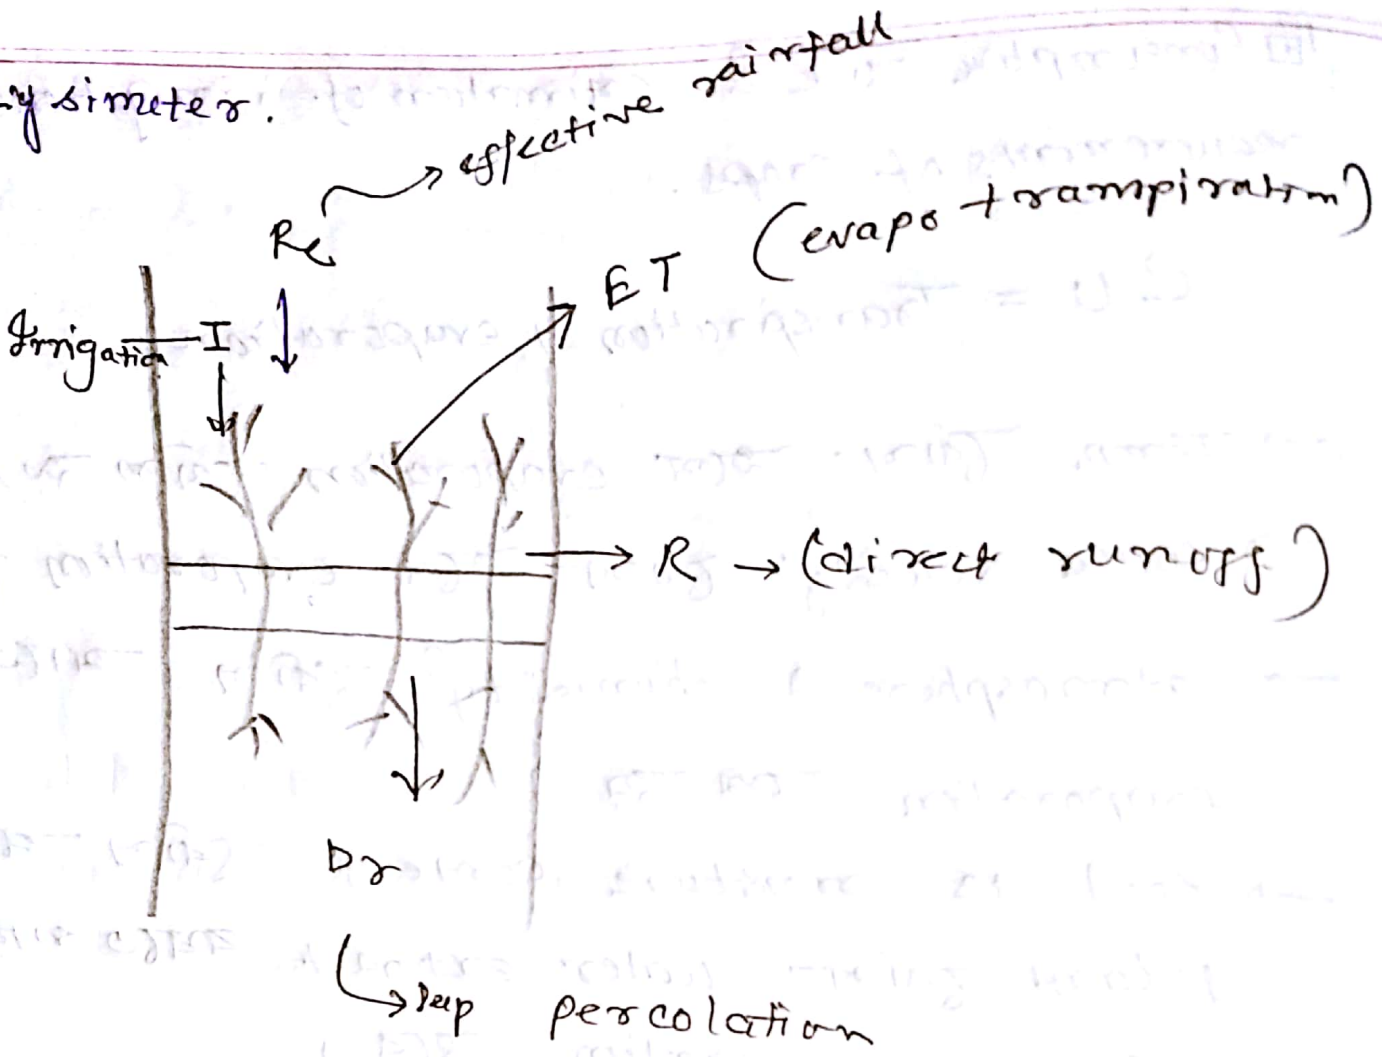 ysimeter.
Re → effective rainfall
ET (evapotranspiration)
Irrigation I
R → (direct runoff)
Dr
deep percolation